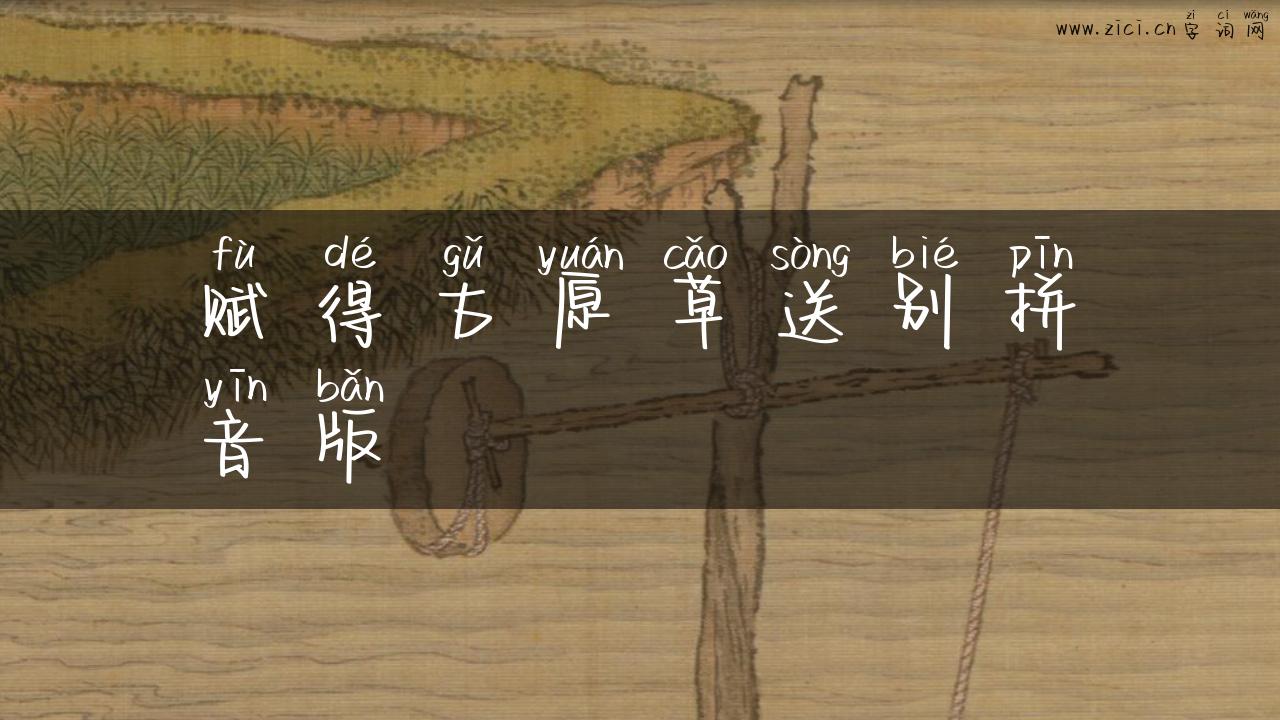 zì cí wǎng
www.zici.cn 字词网
fù dé gǔ yuán cǎo sòng bié pīn
赋得古原草送别拼
yīn bǎn
音版